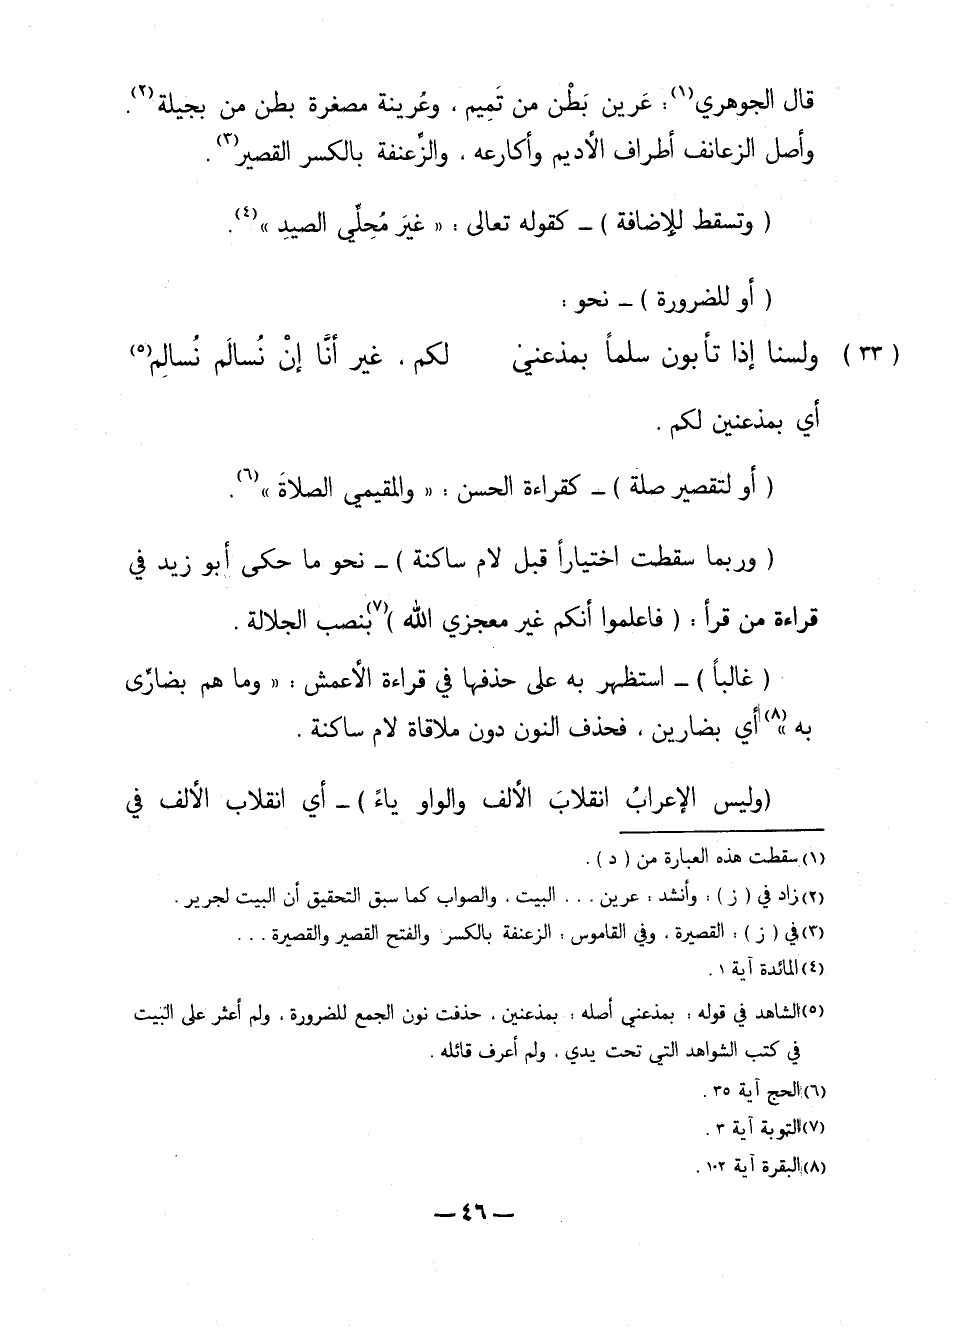 قال الجوهري(١): عَرين بَطْن من تَمِيم ، وعُرينة مصغرة بطن من بجيلة(٢).
وأصل الزعانف أطراف الأديم وأكارعه ، والزِّعنفة بالكسر القصير(٣).
( وتسقط للإضافة ) ـ كقوله تعالى : « غيرَ مُحِلِّي الصيدِ »(٤).
( أو للضرورة ) ـ نحو :
( ٣٣ ) ولسنا إذا تأبون سلماً بمذعني لكم ، غير أنَّا إنْ نُسالَم نُسالِم(٥)
أي بمذعنين لكم .
( أو لتقصير صلة ) ـ كقراءة الحسن : « والمقيمي الصلاةَ »(٦).
( وربما سقطت اختياراً قبل لام ساكنة ) ـ نحو ما حكى أبو زيد في
قراءة من قرأ : ( فاعلموا أنكم غير معجزي الله )(٧) بنصب الجلالة .
( غالباً ) ـ استظهر به على حذفها في قراءة الأعمش : « وما هم بضارِّى
به »(٨) أي بضارين ، فحذف النون دون ملاقاة لام ساكنة .
(وليس الإعرابُ انقلابَ الألف والواو ياءً ) ـ أي انقلاب الألف في
(١) سقطت هذه العبارة من ( د ) .
(٢) زاد في ( ز ) : وأنشد : عرين . . . البيت ، والصواب كما سبق التحقيق أن البيت لجرير .
(٣) في ( ز ) : القصيرة ، وفي القاموس : الزعنفة بالكسر والفتح القصير والقصيرة . . .
(٤) المائدة آية ١ .
(٥) الشاهد في قوله : بمذعني أصله : بمذعنين ، حذفت نون الجمع للضرورة ، ولم أعثر على البيت
في كتب الشواهد التي تحت يدي ، ولم أعرف قائله .
(٦) الحج آية ٣٥ .
(٧) التوبة آية ٣ .
(٨) البقرة آية ١٠٢ .
ـ ٤٦ ـ